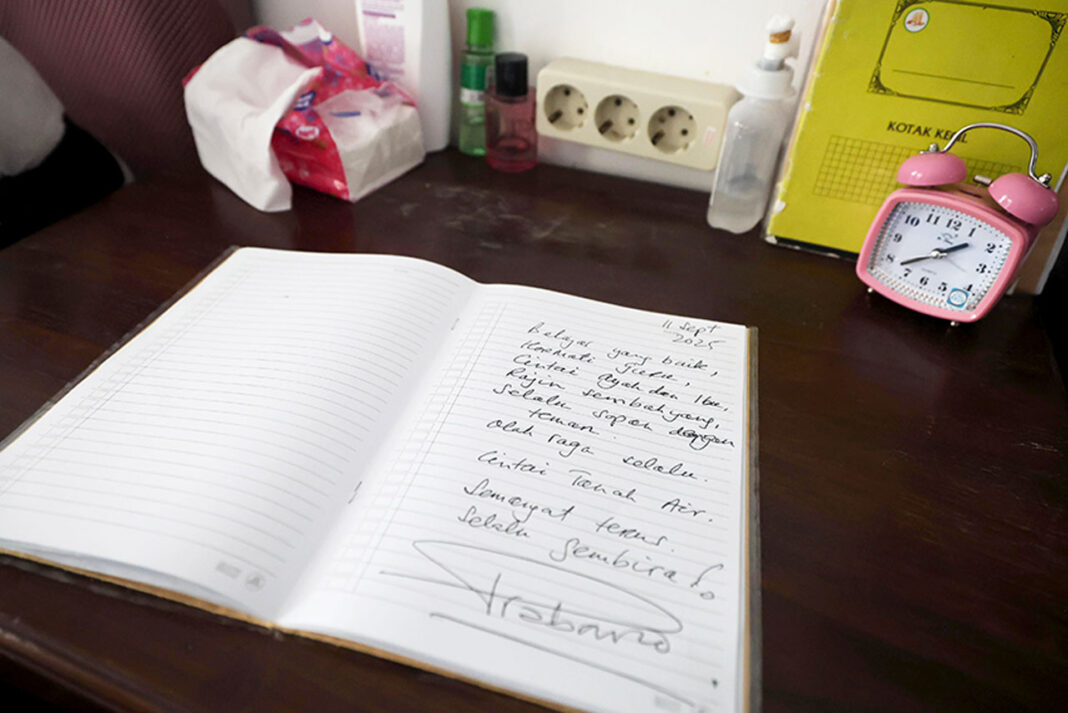 11 Sept
2025
Belajar yang baik,
Hormati Guru,
Cintai ayah dan Ibu,
Rajin sembahyang,
Selalu sopan dengan
teman.
Olah raga selalu.
Cintai Tanah Air.
Semangat terus.
Selalu gembira
Prabowo
KOTAK KECIL
10 11 12 1
9 2
8 3
7 6 5 4
QUARTZ